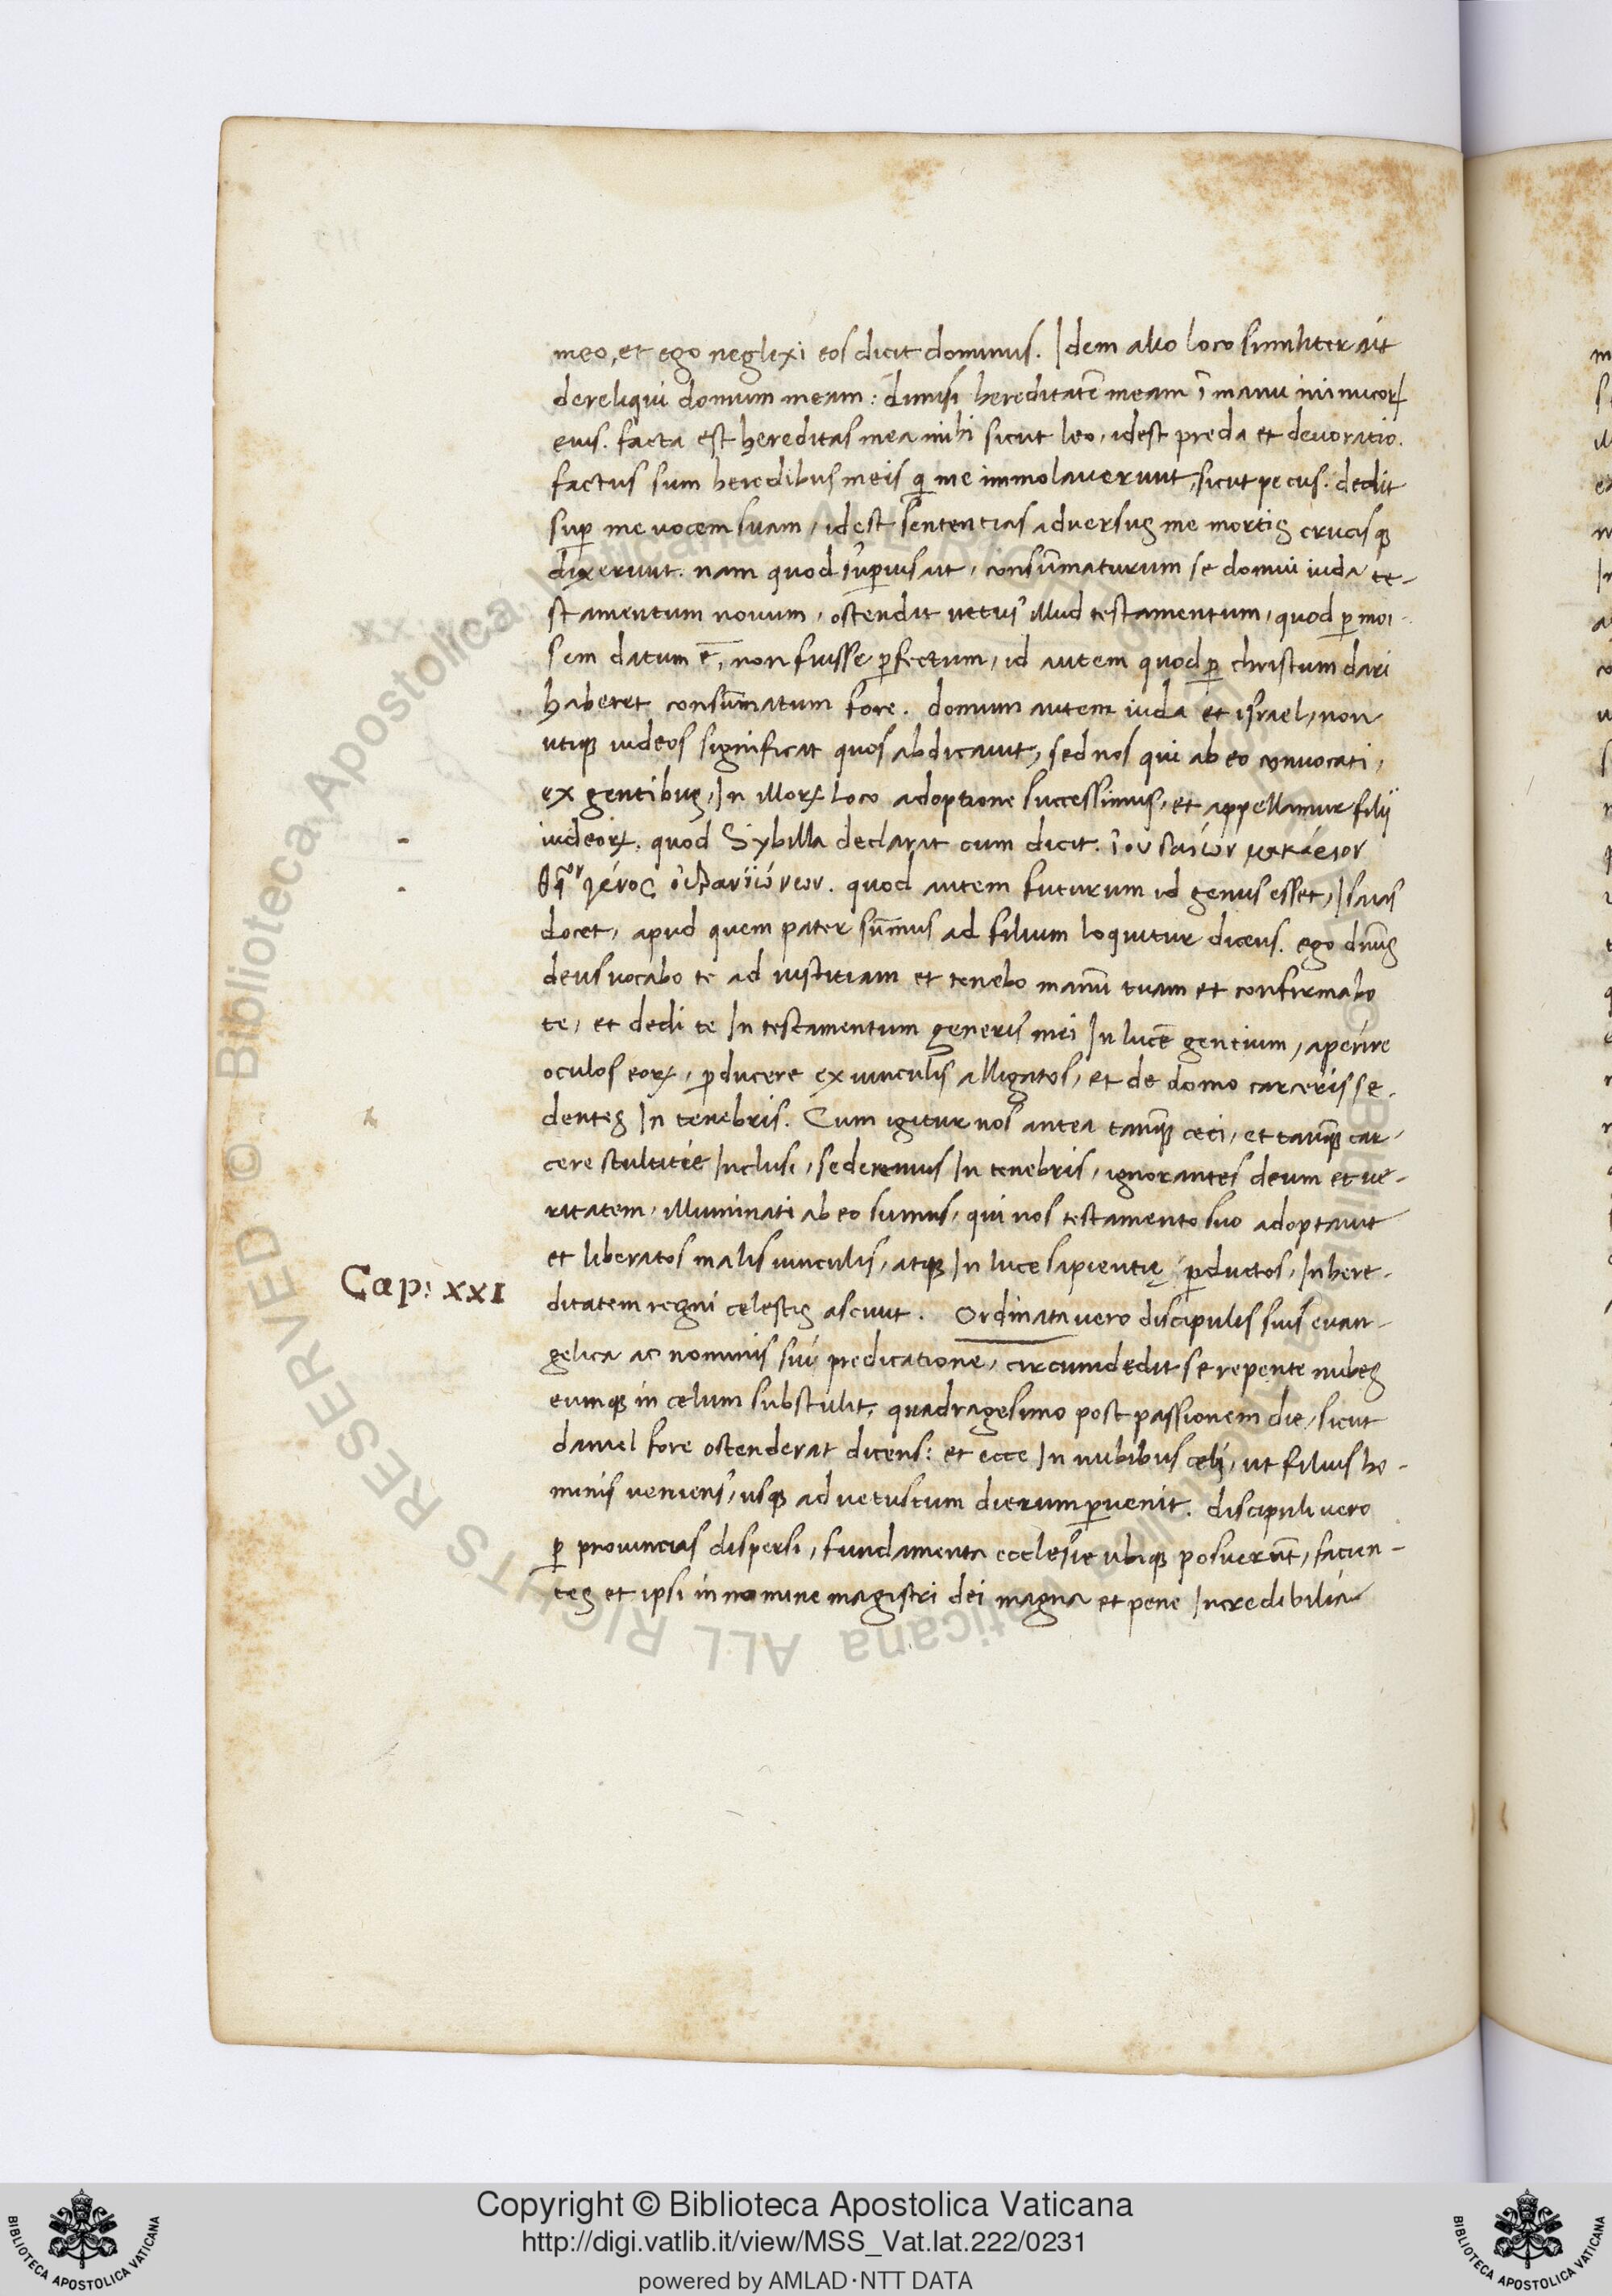 meo, et ego neglexi eos dicit dominus. Idem alio loco similiter ait
dereliqui domum meam: dimisi hereditatē meam ī manu inimicoꝝ
eius. facta est hereditas mea mihi sicut leo, idest preda et devoratio.
factus sum heredibus meis q̄ me immolaverunt, sicut pecus. dedit
suꝑ me vocem suam, idest sententias adversus me mortis crucisqꝫ
dixerunt. nam quod suꝑius ait, consūmaturum se domui iuda te-
stamentum novum, ostendit vetus illud testamentum, quod ꝑ moi-
sem datum ē, non fuisse ꝑfectum, id autem quod ꝑ christum dari
haberet consūmatum fore. domum autem iuda et israel, non
utiqꝫ iudeos significat quos abdicavit, sed nos qui ab eo convocati,
ex gentibus, In illoꝝ loco adoptione successimus, et appellamur filij
iudeoꝝ. quod Sybilla declarat cum dicit.
γένος quod autem futurum id genus esset, Isaias
docet, apud quem pater sūmus ad filium loquitur dicens. ego dn̄us
deus vocabo te ad iustitiam et tenebo manū tuam et confirmabo
te, et dedi te In testamentum generis mei In lucē gentium, aperire
oculos eoꝝ, ꝑducere ex vinculis alligatos, et de domo carceris se-
dentes In tenebris. Cum igitur nos antea tanqꝫ ceci, et tanqꝫ car-
cere stultitie Inclusi, sederemus In tenebris, ignorantes deum et ve-
ritatem, illuminati ab eo sumus, qui nos testamento suo adoptavit
et liberatos malis vinculis, atqꝫ In luce sapientię ꝑductos, In here-
Cap: XXI
ditatem regni celestis ascivit. Ordinata vero discipulis suis evan-
gelica ac nominis sui predicatione, circumdedit se repente nubes
eumqꝫ in celum substulit, quadragesimo post passionem die, sicut
daniel fore ostenderat dicens: et ecce In nubibus celi, ut filius ho-
minis veniens, usqꝫ ad vetustum dierum ꝑvenit. discipuli vero
ꝑ provincias dispersi, fundamenta ecclesie ubiqꝫ posuerūt, facien-
tes et ipsi in nomine magistri dei magna et pene Incredibilia
© Biblioteca Apostolica Vaticana ALL RIGHTS RESERVED
Copyright © Biblioteca Apostolica Vaticana
http://digi.vatlib.it/view/MSS_Vat.lat.222/0231
powered by AMLAD·NTT DATA
BIBLIOTECA APOSTOLICA VATICANA
BIBLIOTECA APOSTOLICA VATICANA